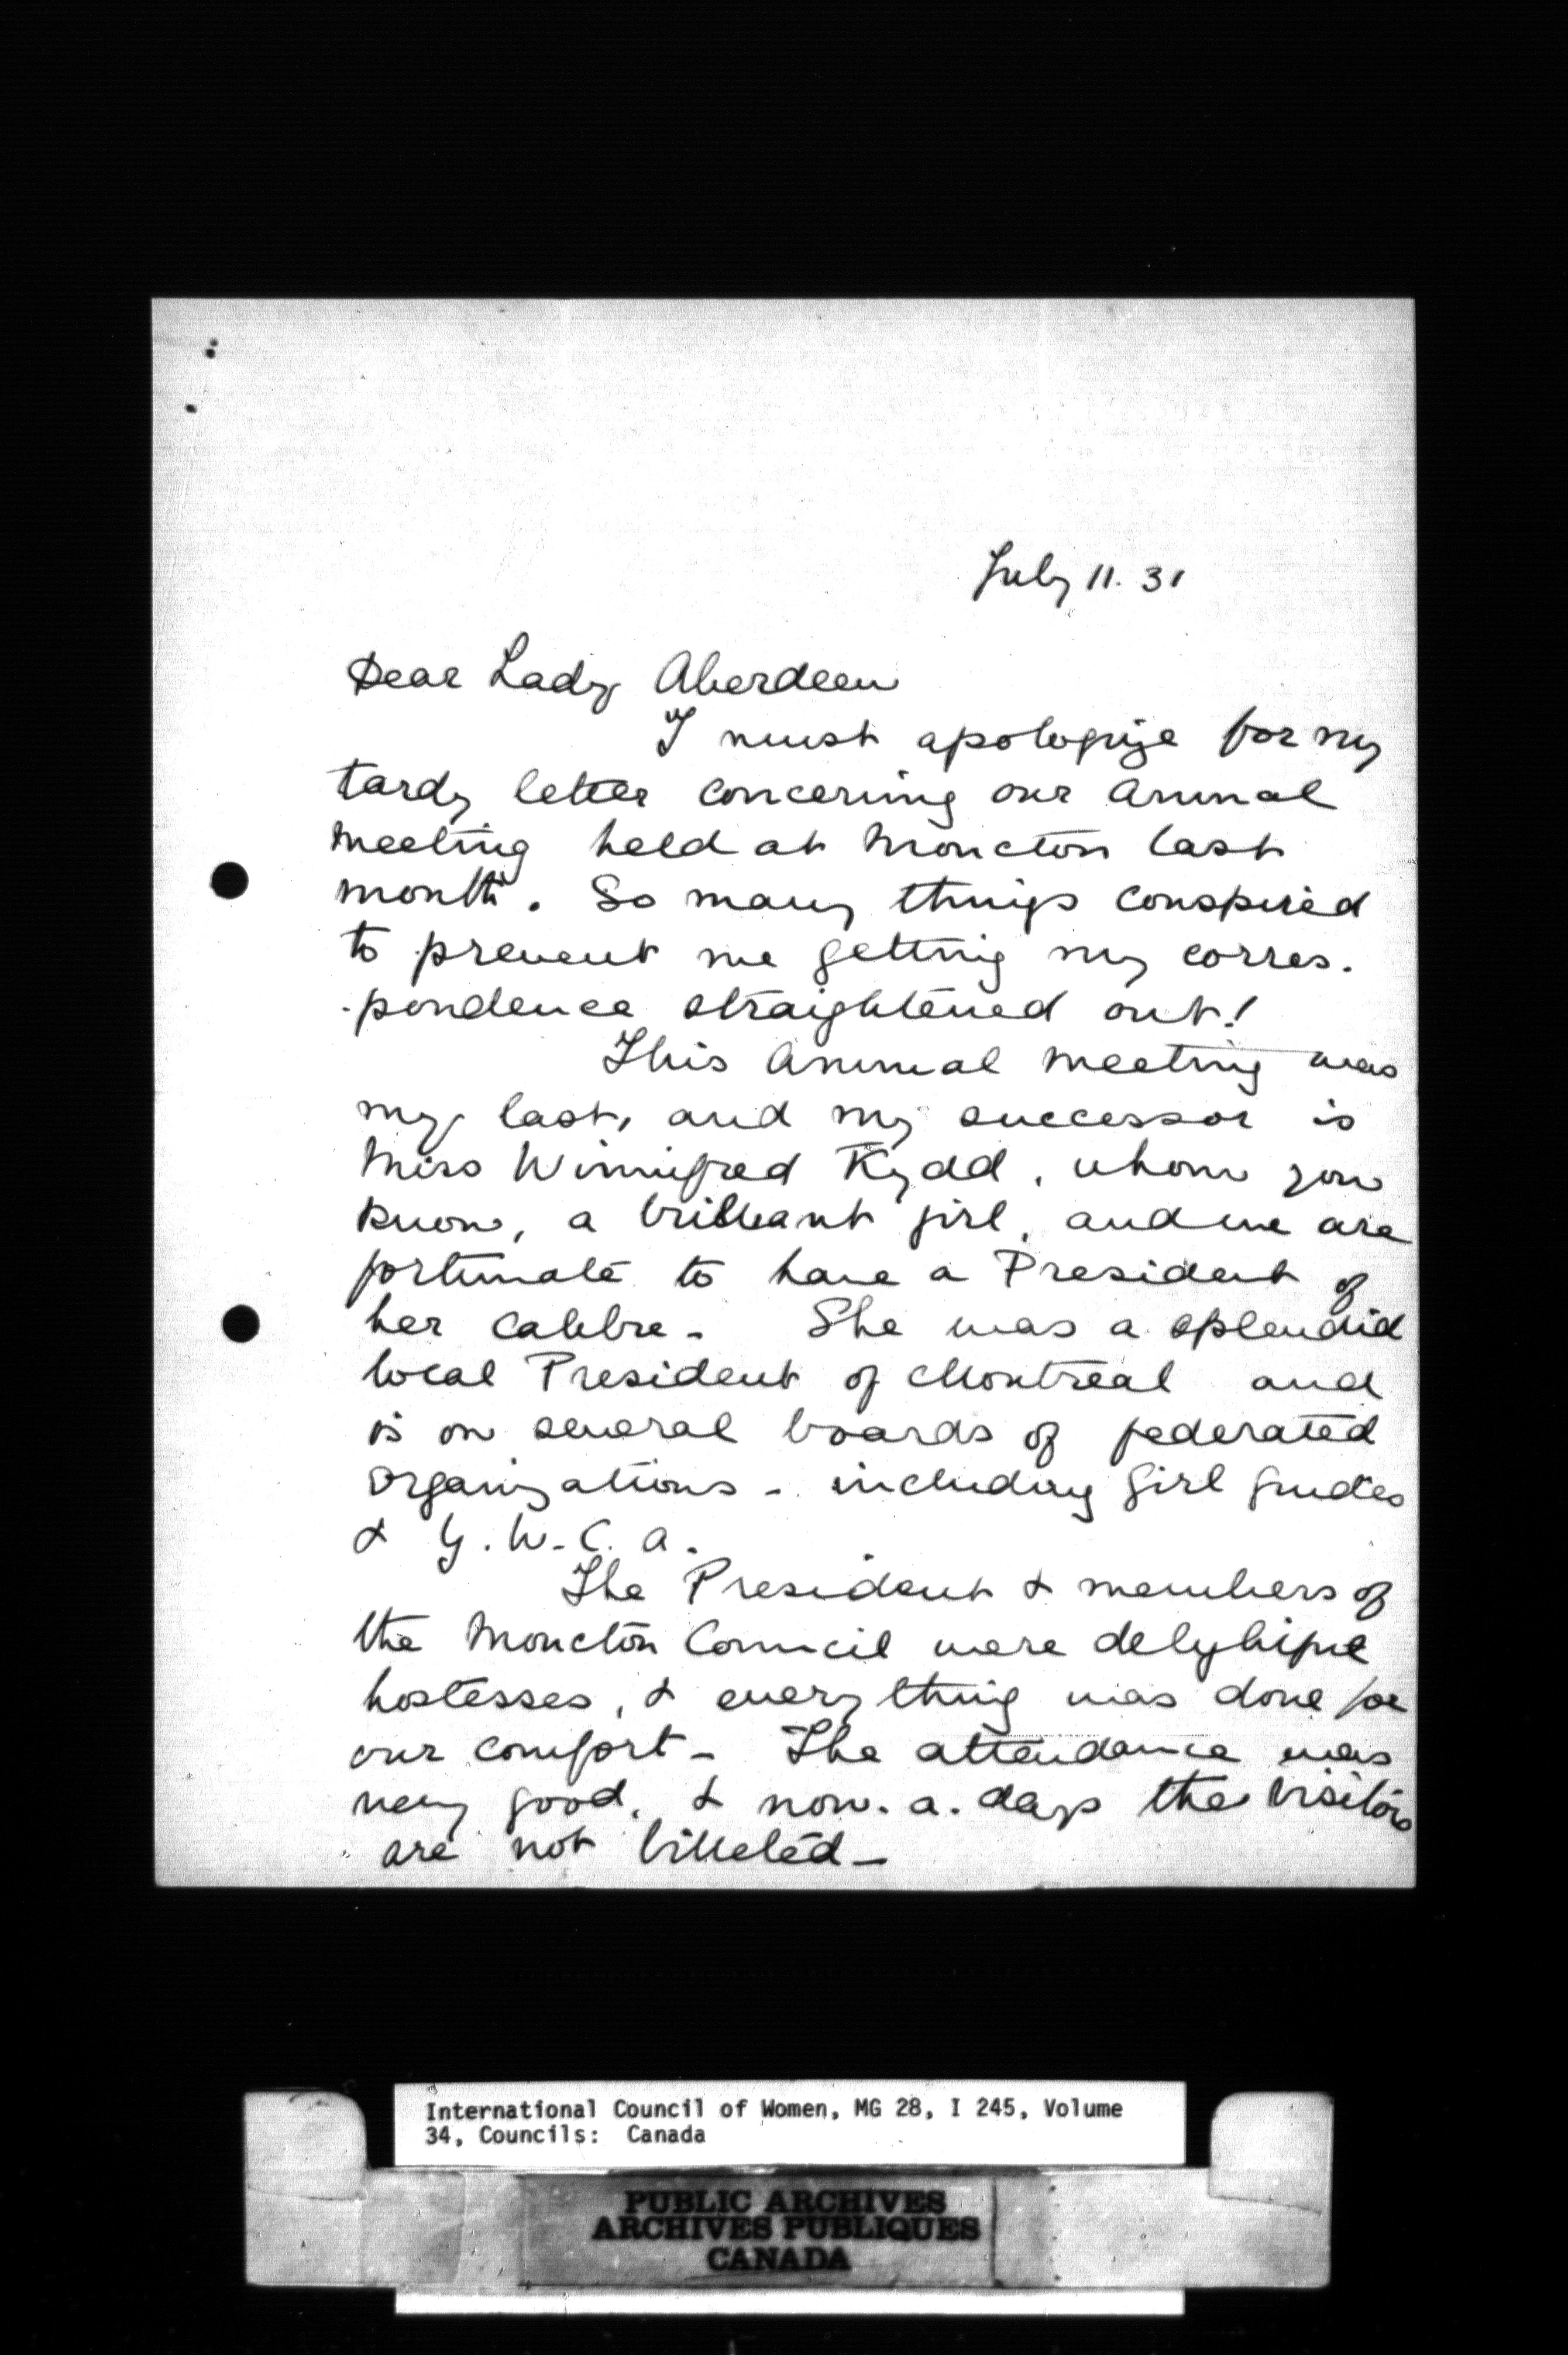 July 11. 31
Dear Lady Aberdeen
I must apologize for my
tardy letter concerning our Annual
meeting held at Moncton last
month. So many things conspired
to prevent me getting my corres.
.pondence straightened out!
This Annual meeting was
my last, and my successor is
Miss Winnifred Kydd, whom you
know, a brilliant girl, and we are
fortunate to have a President of
her calibre - She was a splendid
local President of Montreal and
is on several boards of federated
organizations - including Girl Guides
& Y.W.C.A.
The President & members of
the Moncton Council were delightful
hostesses, & everything was done for
our comfort - The attendance was
very good, & now.a.days the visitors
are not billeted -
International Council of Women, MG 28, I 245, Volume
34, Councils: Canada
PUBLIC ARCHIVES
ARCHIVES PUBLIQUES
CANADA